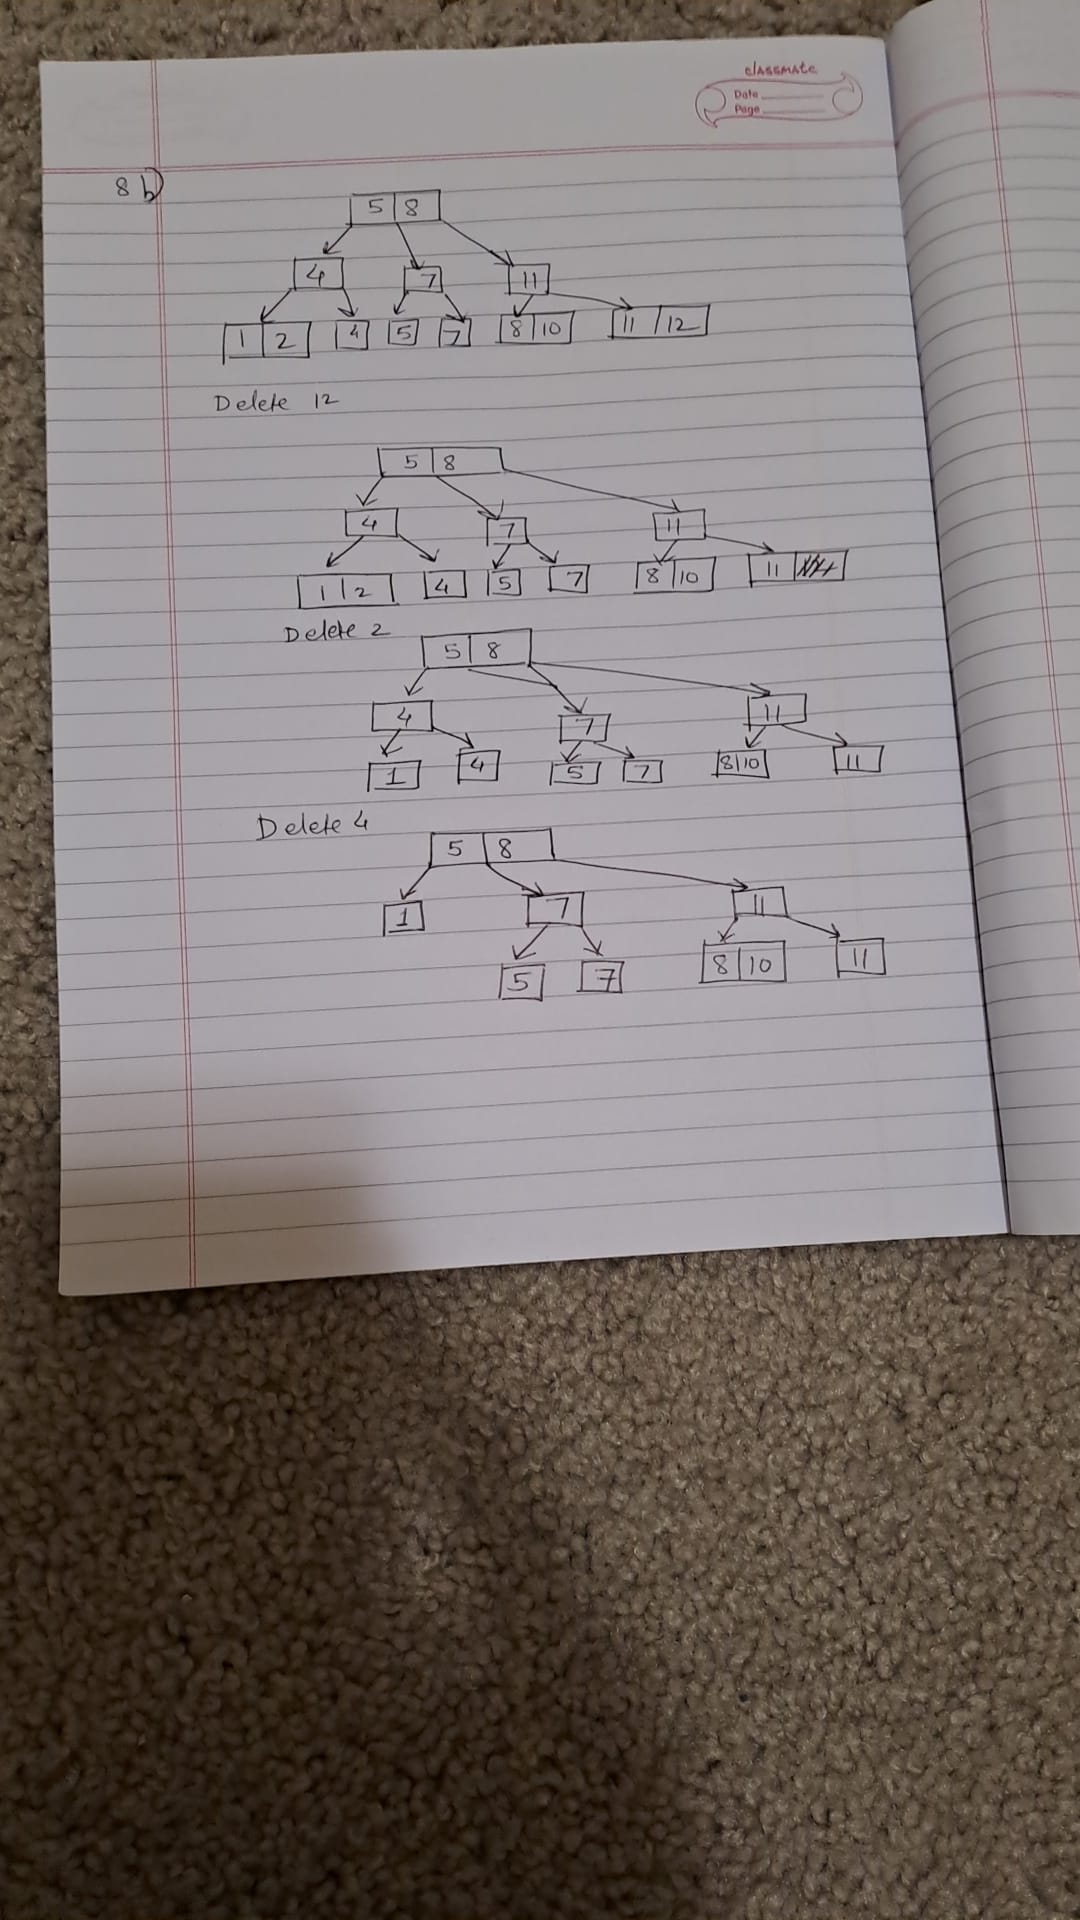 classmate
Date
Page
8 b)
5 8
4 7 11
1 2 4 5 7 8 10 11 12
Delete 12
5 8
4 7 11
1 2 4 5 7 8 10 11
Delete 2
5 8
4 7 11
1 4 5 7 8 10 11
Delete 4
5 8
1 7 11
5 7 8 10 11